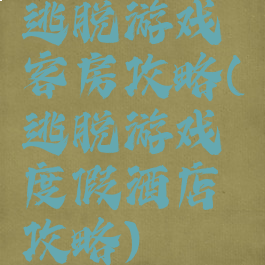 逃脱游戏
客房攻略(
逃脱游戏
度假酒店
攻略)